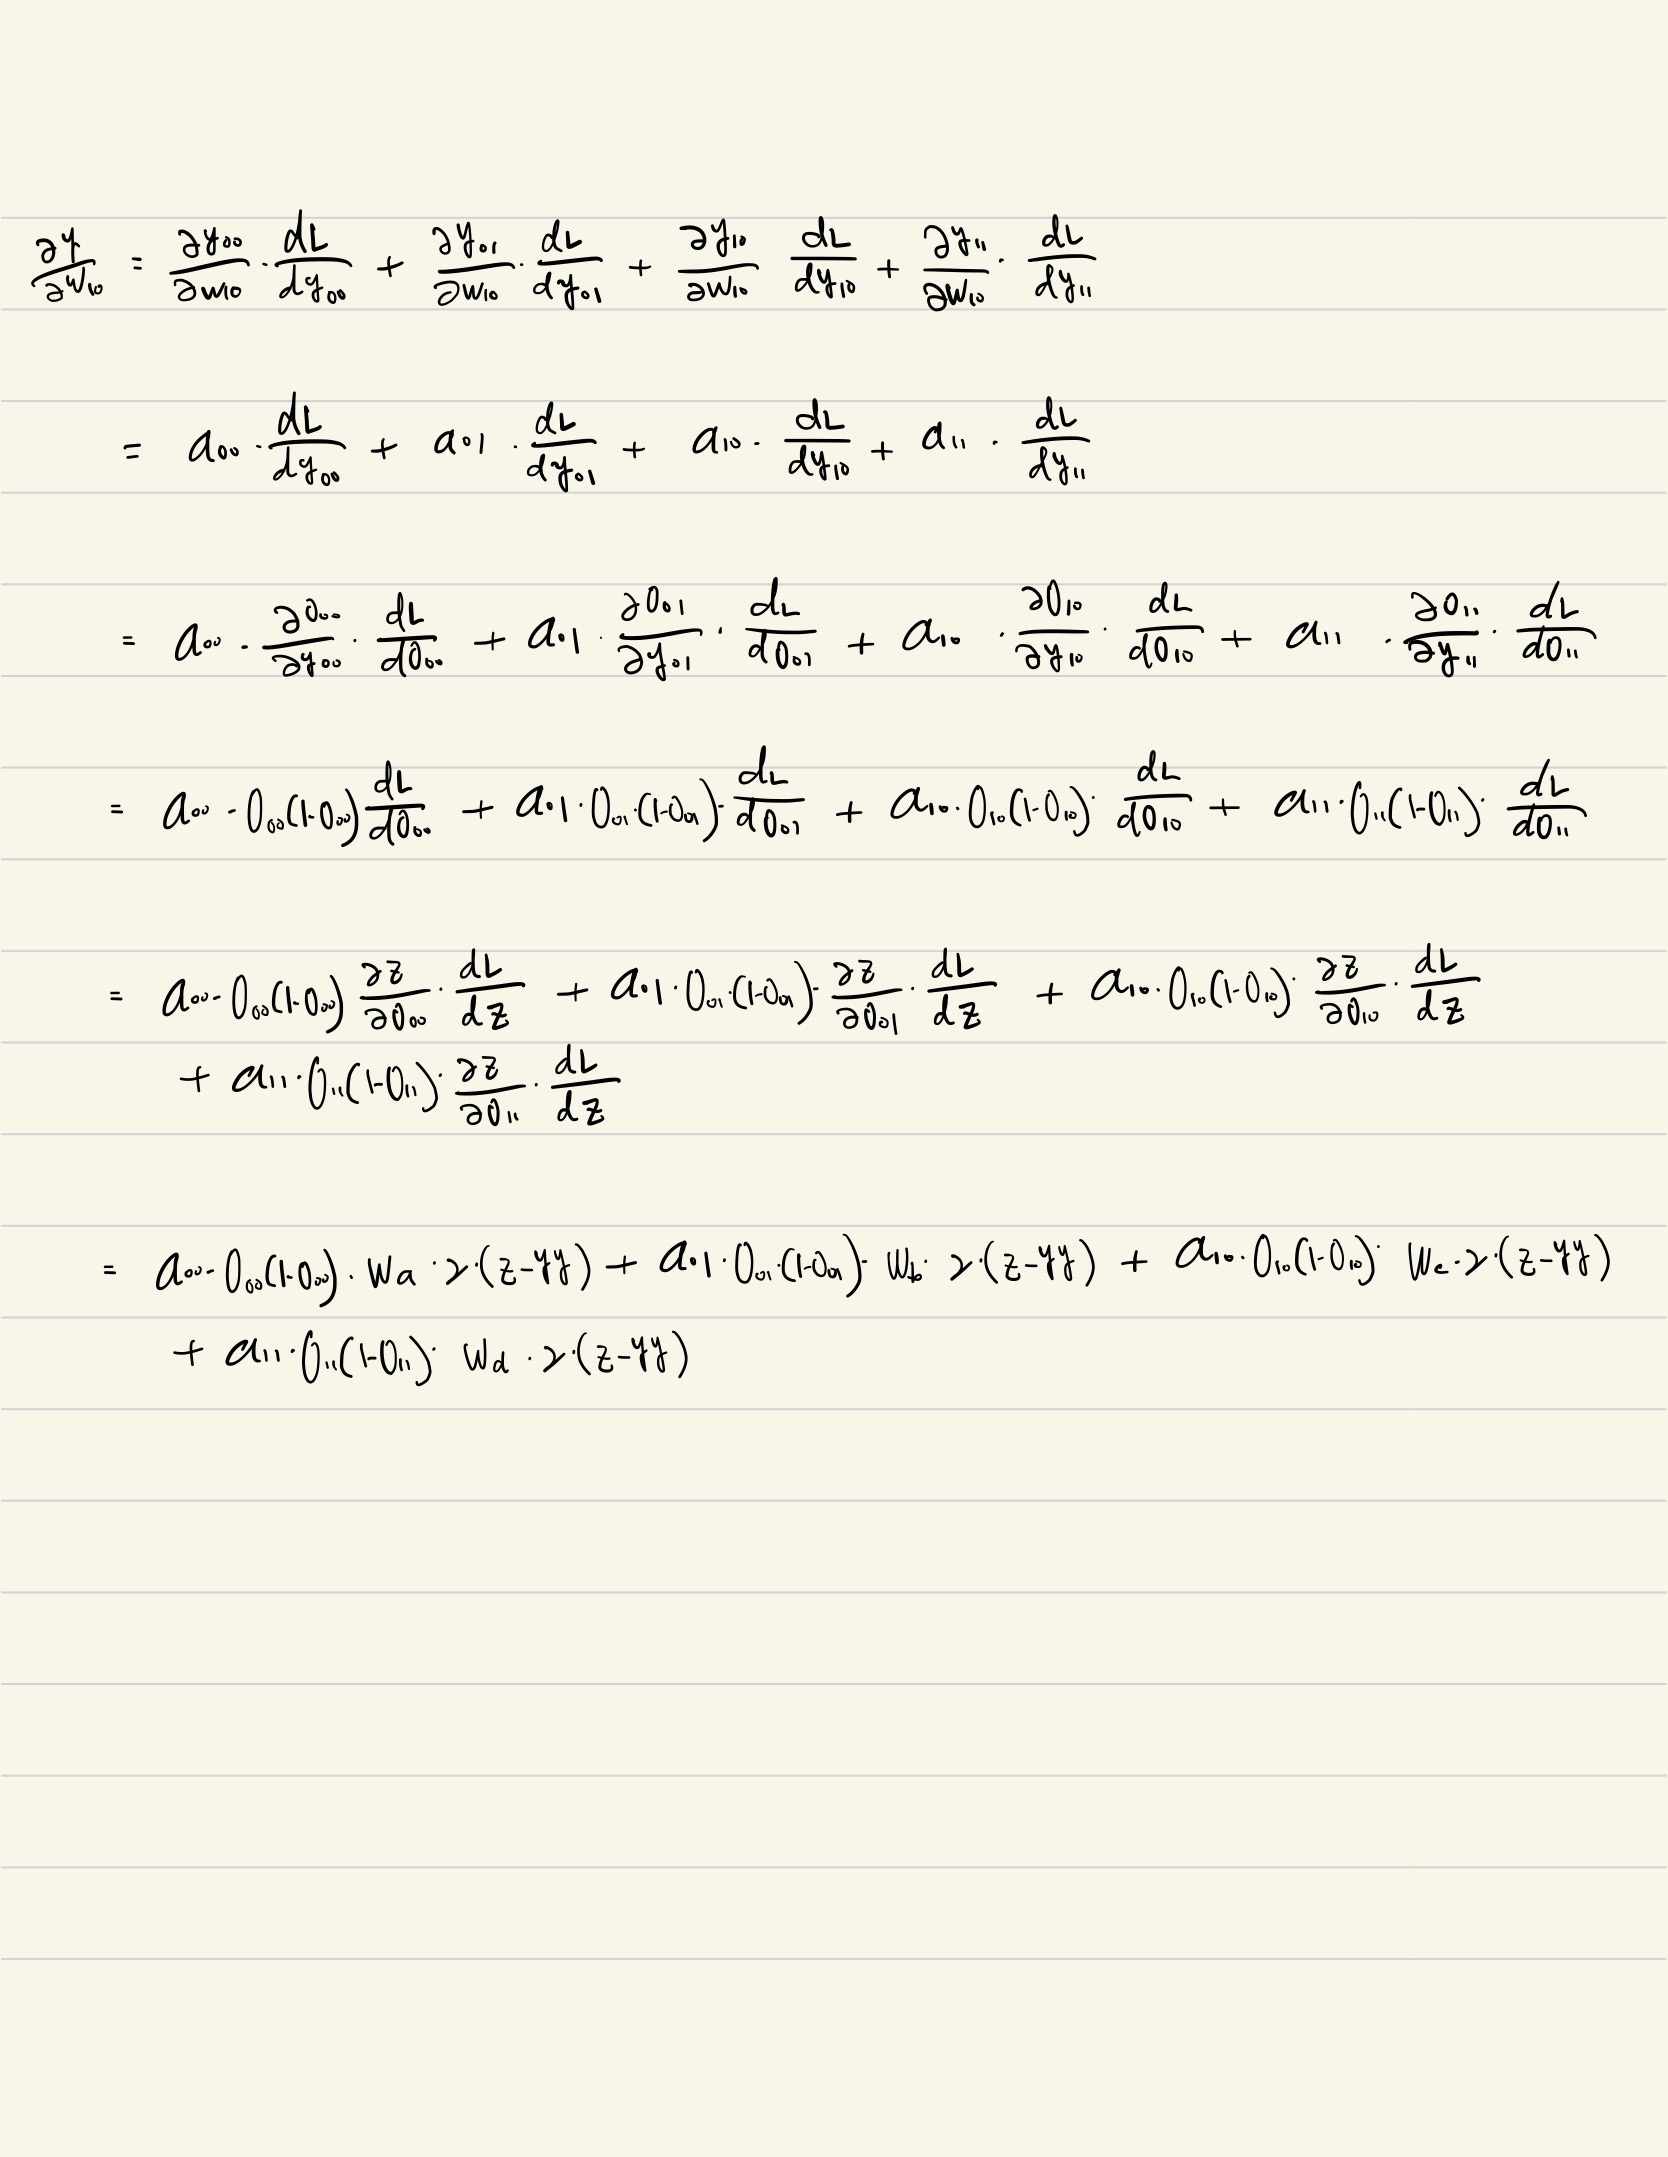 ∂y/∂w₁₀ = ∂y₀₀/∂w₁₀ · dL/dy₀₀ + ∂y₀₁/∂w₁₀ · dL/dy₀₁ + ∂y₁₀/∂w₁₀ dL/dy₁₀ + ∂y₁₁/∂w₁₀ · dL/dy₁₁
= a₀₀ · dL/dy₀₀ + a₀₁ · dL/dy₀₁ + a₁₀ · dL/dy₁₀ + a₁₁ · dL/dy₁₁
= a₀₀ · ∂O₀₀/∂y₀₀ · dL/dO₀₀ + a₀₁ · ∂O₀₁/∂y₀₁ · dL/dO₀₁ + a₁₀ · ∂O₁₀/∂y₁₀ · dL/dO₁₀ + a₁₁ · ∂O₁₁/∂y₁₁ · dL/dO₁₁
= a₀₀ · O₀₀(1-O₀₀) dL/dO₀₀ + a₀₁ · O₀₁·(1-O₀₁) · dL/dO₀₁ + a₁₀ · O₁₀(1-O₁₀) · dL/dO₁₀ + a₁₁ · O₁₁(1-O₁₁) · dL/dO₁₁
= a₀₀ · O₀₀(1-O₀₀) ∂z/∂O₀₀ · dL/dz + a₀₁ · O₀₁·(1-O₀₁) · ∂z/∂O₀₁ · dL/dz + a₁₀ · O₁₀(1-O₁₀) · ∂z/∂O₁₀ · dL/dz
+ a₁₁ · O₁₁(1-O₁₁) · ∂z/∂O₁₁ · dL/dz
= a₀₀ · O₀₀(1-O₀₀) · Wa · 2 · (z-yy) + a₀₁ · O₀₁·(1-O₀₁) · Wb · 2 · (z-yy) + a₁₀ · O₁₀(1-O₁₀) · Wc · 2 · (z-yy)
+ a₁₁ · O₁₁(1-O₁₁) · Wd · 2 · (z-yy)